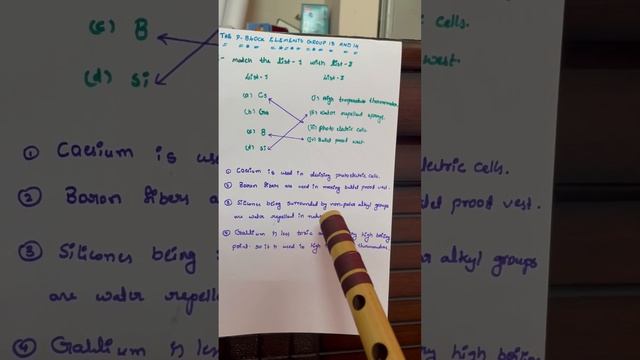 THE P-BLOCK ELEMENTS GROUP 13 AND 14
match the List-1 with List-2
List-1 List-2
(a) Cs (i) High temperature thermometer
(b) Ga (ii) water repellent sponge
(c) B (iii) photo electric cells
(d) Si (iv) Bullet proof vest.
① Caesium is used in devising photoelectric cells.
② Boron fibers are used in making bullet proof vest.
③ Silicones being surrounded by non-polar alkyl groups
are water repelled in
④ Gallium is less toxic high boiling
point. so it is used in high thermometers
(c) B
(d) Si
① Caesium is
② Boron fibers a
③ Silicones being
are water repelle
④ Gallium is less
cells.
vest.
lectric cells.
let proof vest.
r alkyl groups
ry high boiling